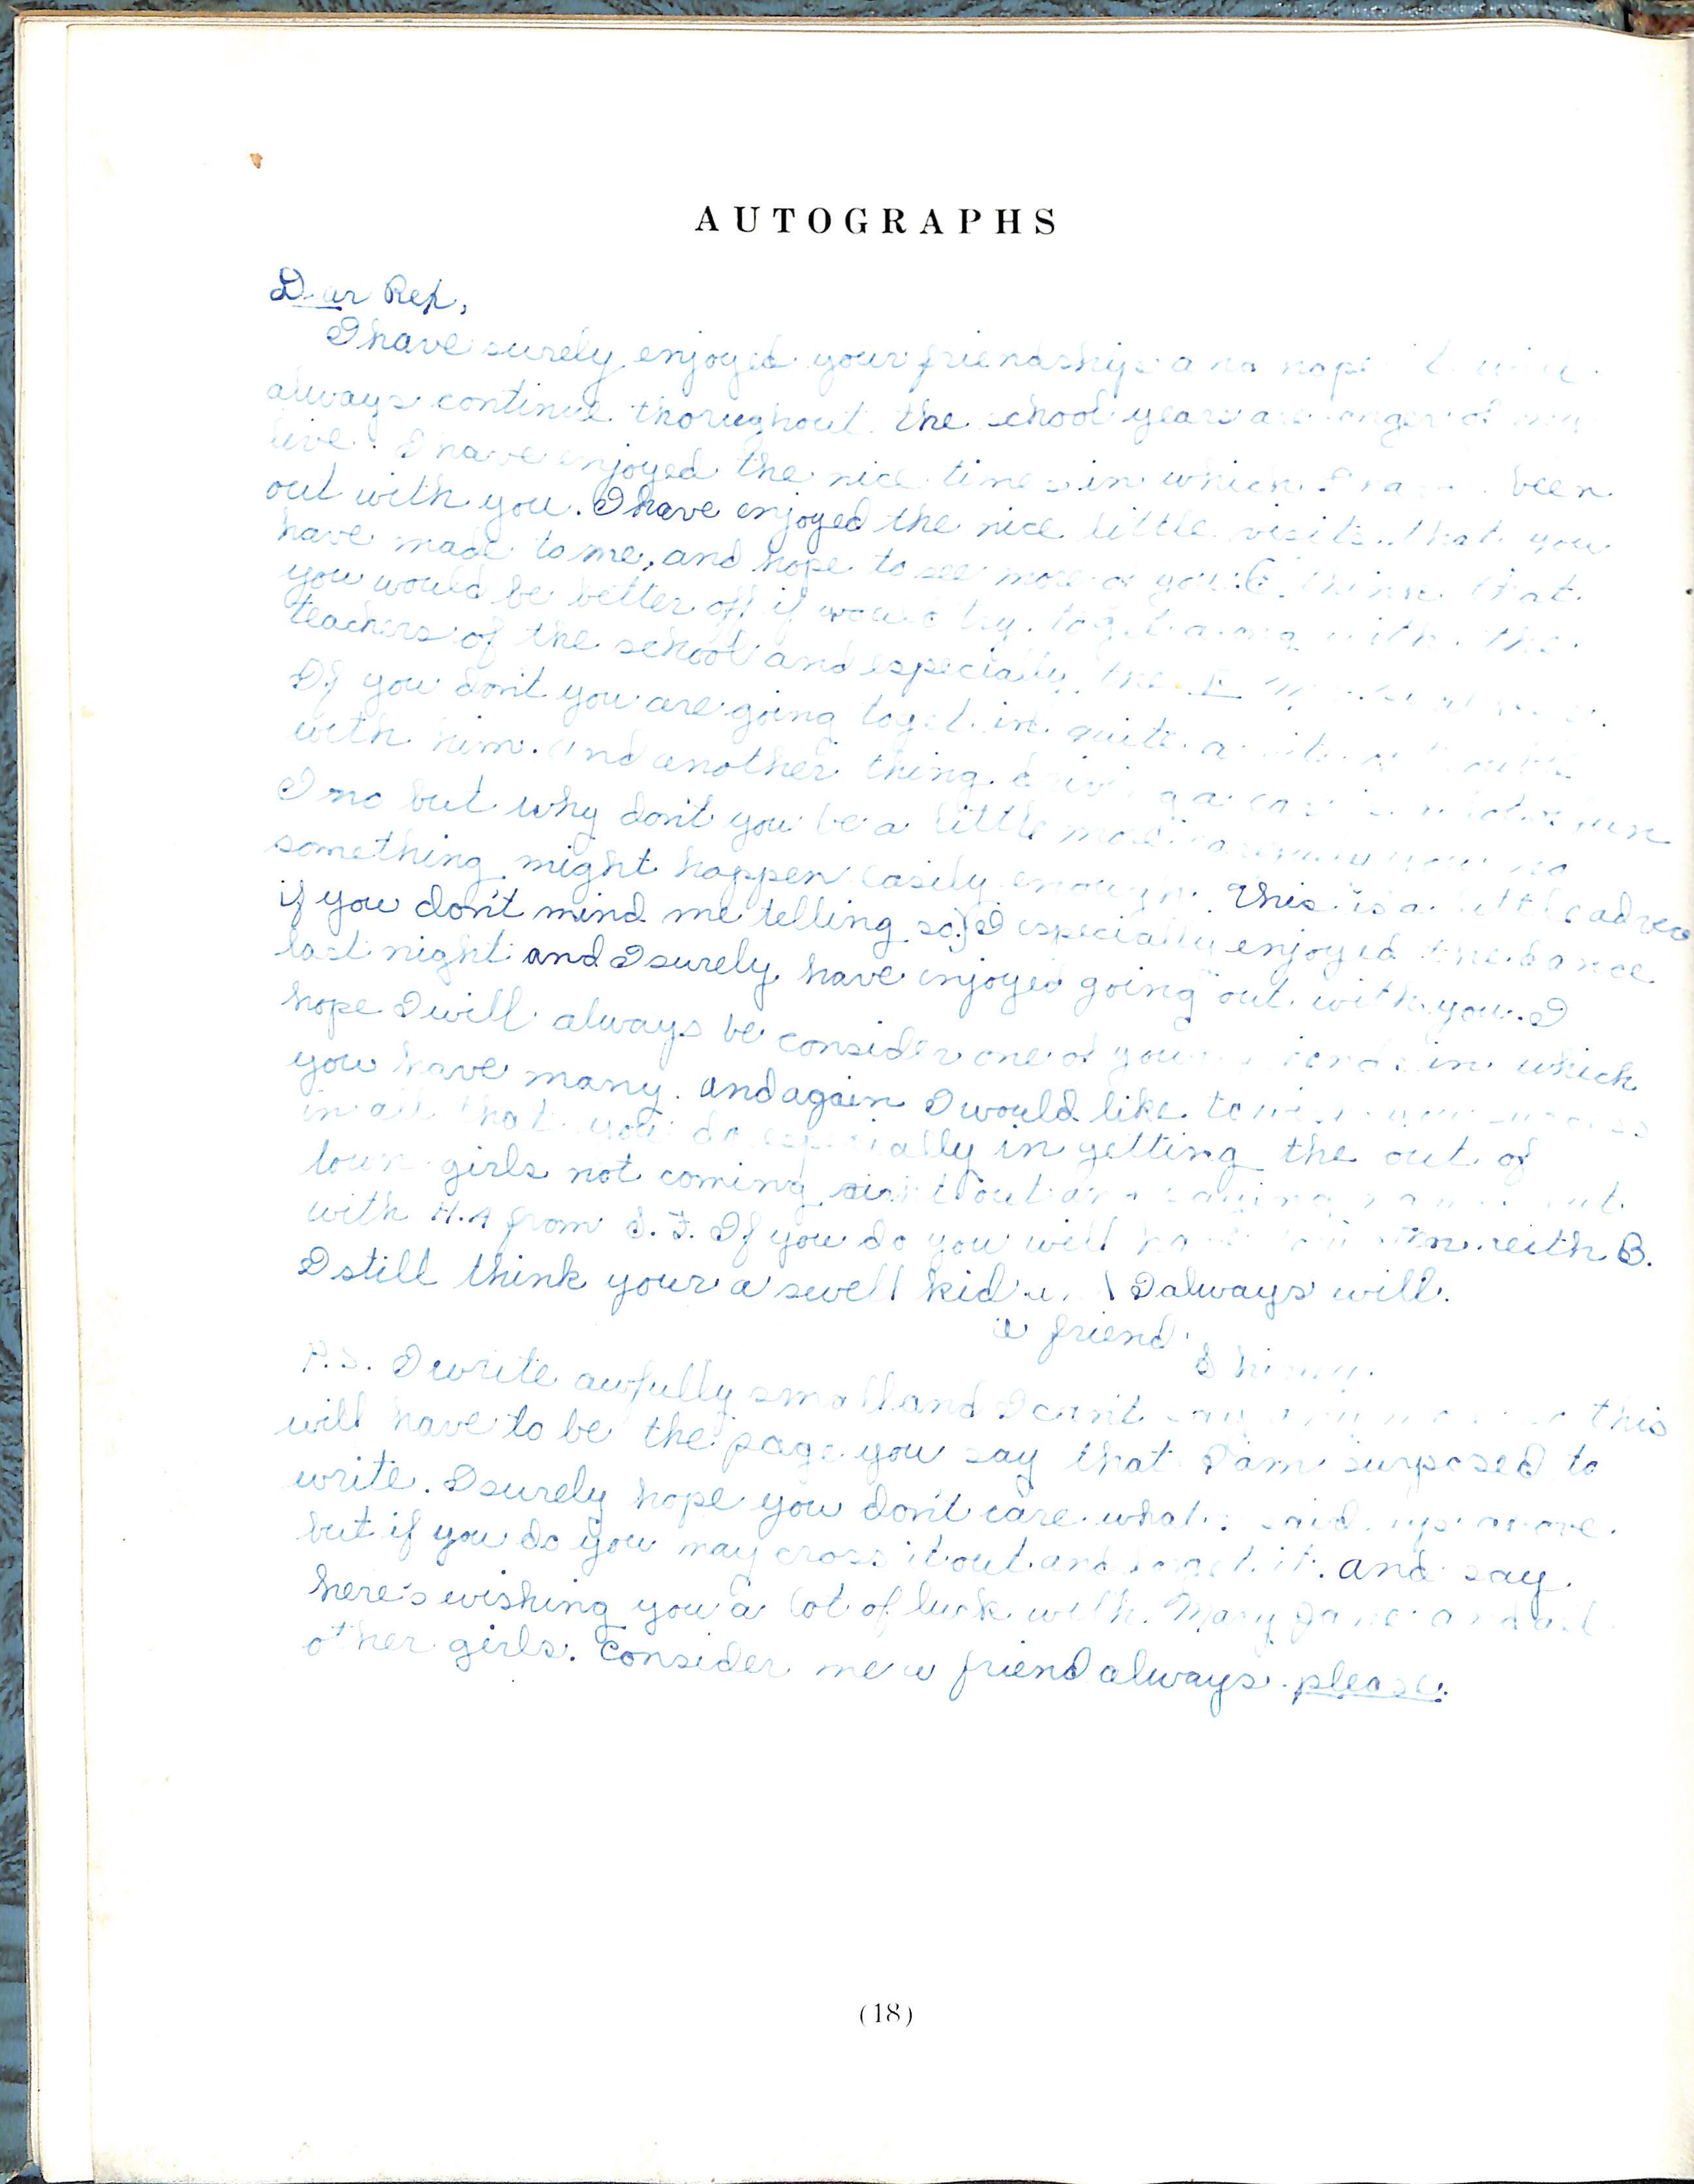 AUTOGRAPHS
Dear Rep,
I have surely enjoyed your friendship and hope it will
always continue thorughout the school years are longer of my
live. I have enjoyed the nice times in which I have been
out with you. I have enjoyed the nice little visits that you
have made to me, and hope to see more of you. (I think that
you would be better off if would try to get along with the
teachers of the school and especially the
If you don't you are going to get in quite a bit of trouble
with him. And another thing driving a car is a lot of fun
I no but why don't you be a little more careful you no
something might happen easily enough. This is a little advice
if you don't mind me telling so.) I especially enjoyed the dance
last night and I surely have enjoyed going out with you. I
hope I will always be consider one of your friends in which
you have many. And again I would like to wish you success
in all that you do especially in getting the out of
town girls not coming right out and saying
with H.A from S.F. If you do you will have with B.
I still think your a swell kid and I always will.
a friend
P.S. I write awfully small and I can't say any more so this
will have to be the page you say that I am surposed to
write. I surely hope you don't care what I said up above
but if you do you may cross it out and forget it. And say
here's wishing you a lot of luck with Mary Jane and all
other girls. Consider me a friend always please.
(18)